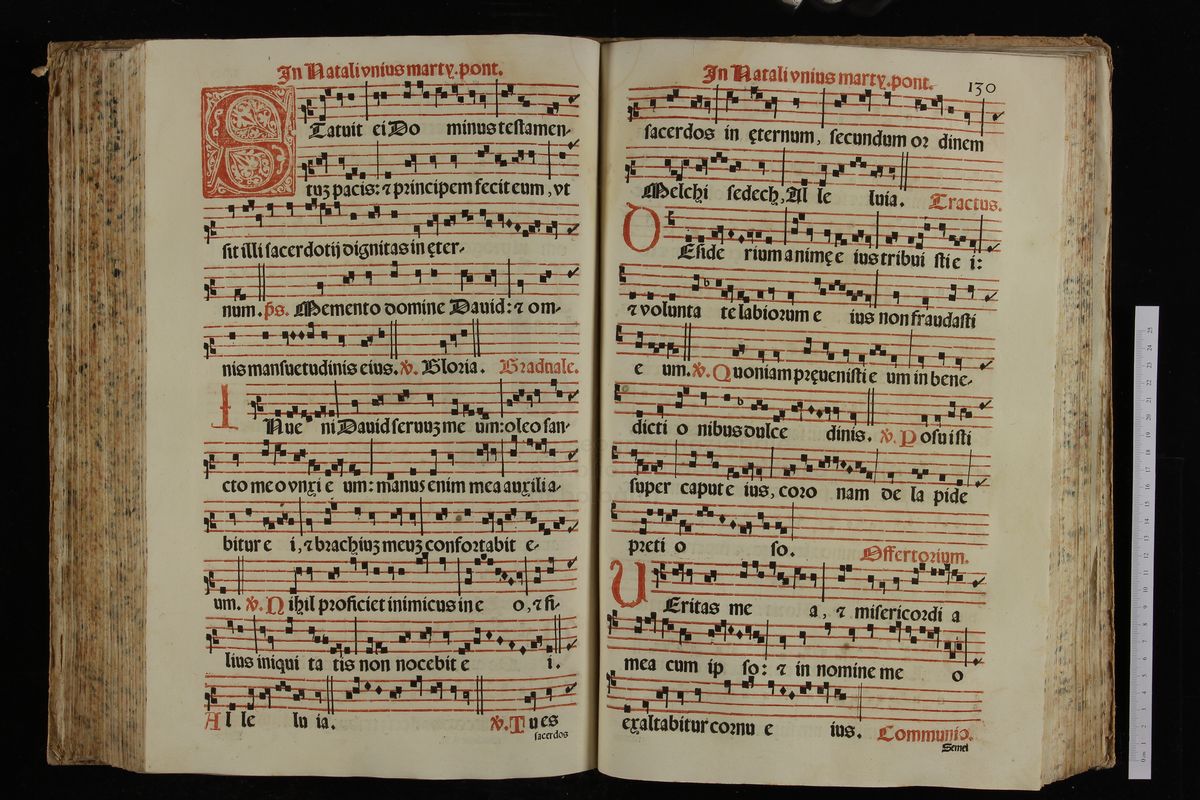 In Natali vnius marty. pont.
STatuit ei Do minus testamen-
tuꝫ pacis: ⁊ principem fecit eum, vt
sit illi sacerdotij dignitas in ęter-
num. p̄s. Memento domine Dauid: ⁊ om-
nis mansuetudinis eius. ℣. Gloria. Graduale.
INue ni Dauid seruuꝫ me um: oleo san-
cto meo vnxi e um: manus enim mea auxilia-
bitur e i, ⁊ brachiuꝫ meuꝫ confortabit e-
um. ℣. Nihil proficiet inimicus in e o, ⁊ fi-
lius iniqui ta tis non nocebit e i.
Al le lu ia. ℣. Tu es
sacerdos
In Natali vnius marty. pont.
130
sacerdos in ęternum, secundum or dinem
Melchi sedech, Al le luia. Tractus.
DEside rium animę e ius tribui sti e i:
⁊ volunta te labiorum e ius non fraudasti
e um. ℣. Quoniam pręuenisti e um in bene-
dicti o nibus dulce dinis. ℣. Posuisti
super caput e ius, coro nam de la pide
preti o so. Offertorium.
VEritas me a, ⁊ misericordi a
mea cum ip so: ⁊ in nomine me o
exaltabitur cornu e ius. Communio.
Semel